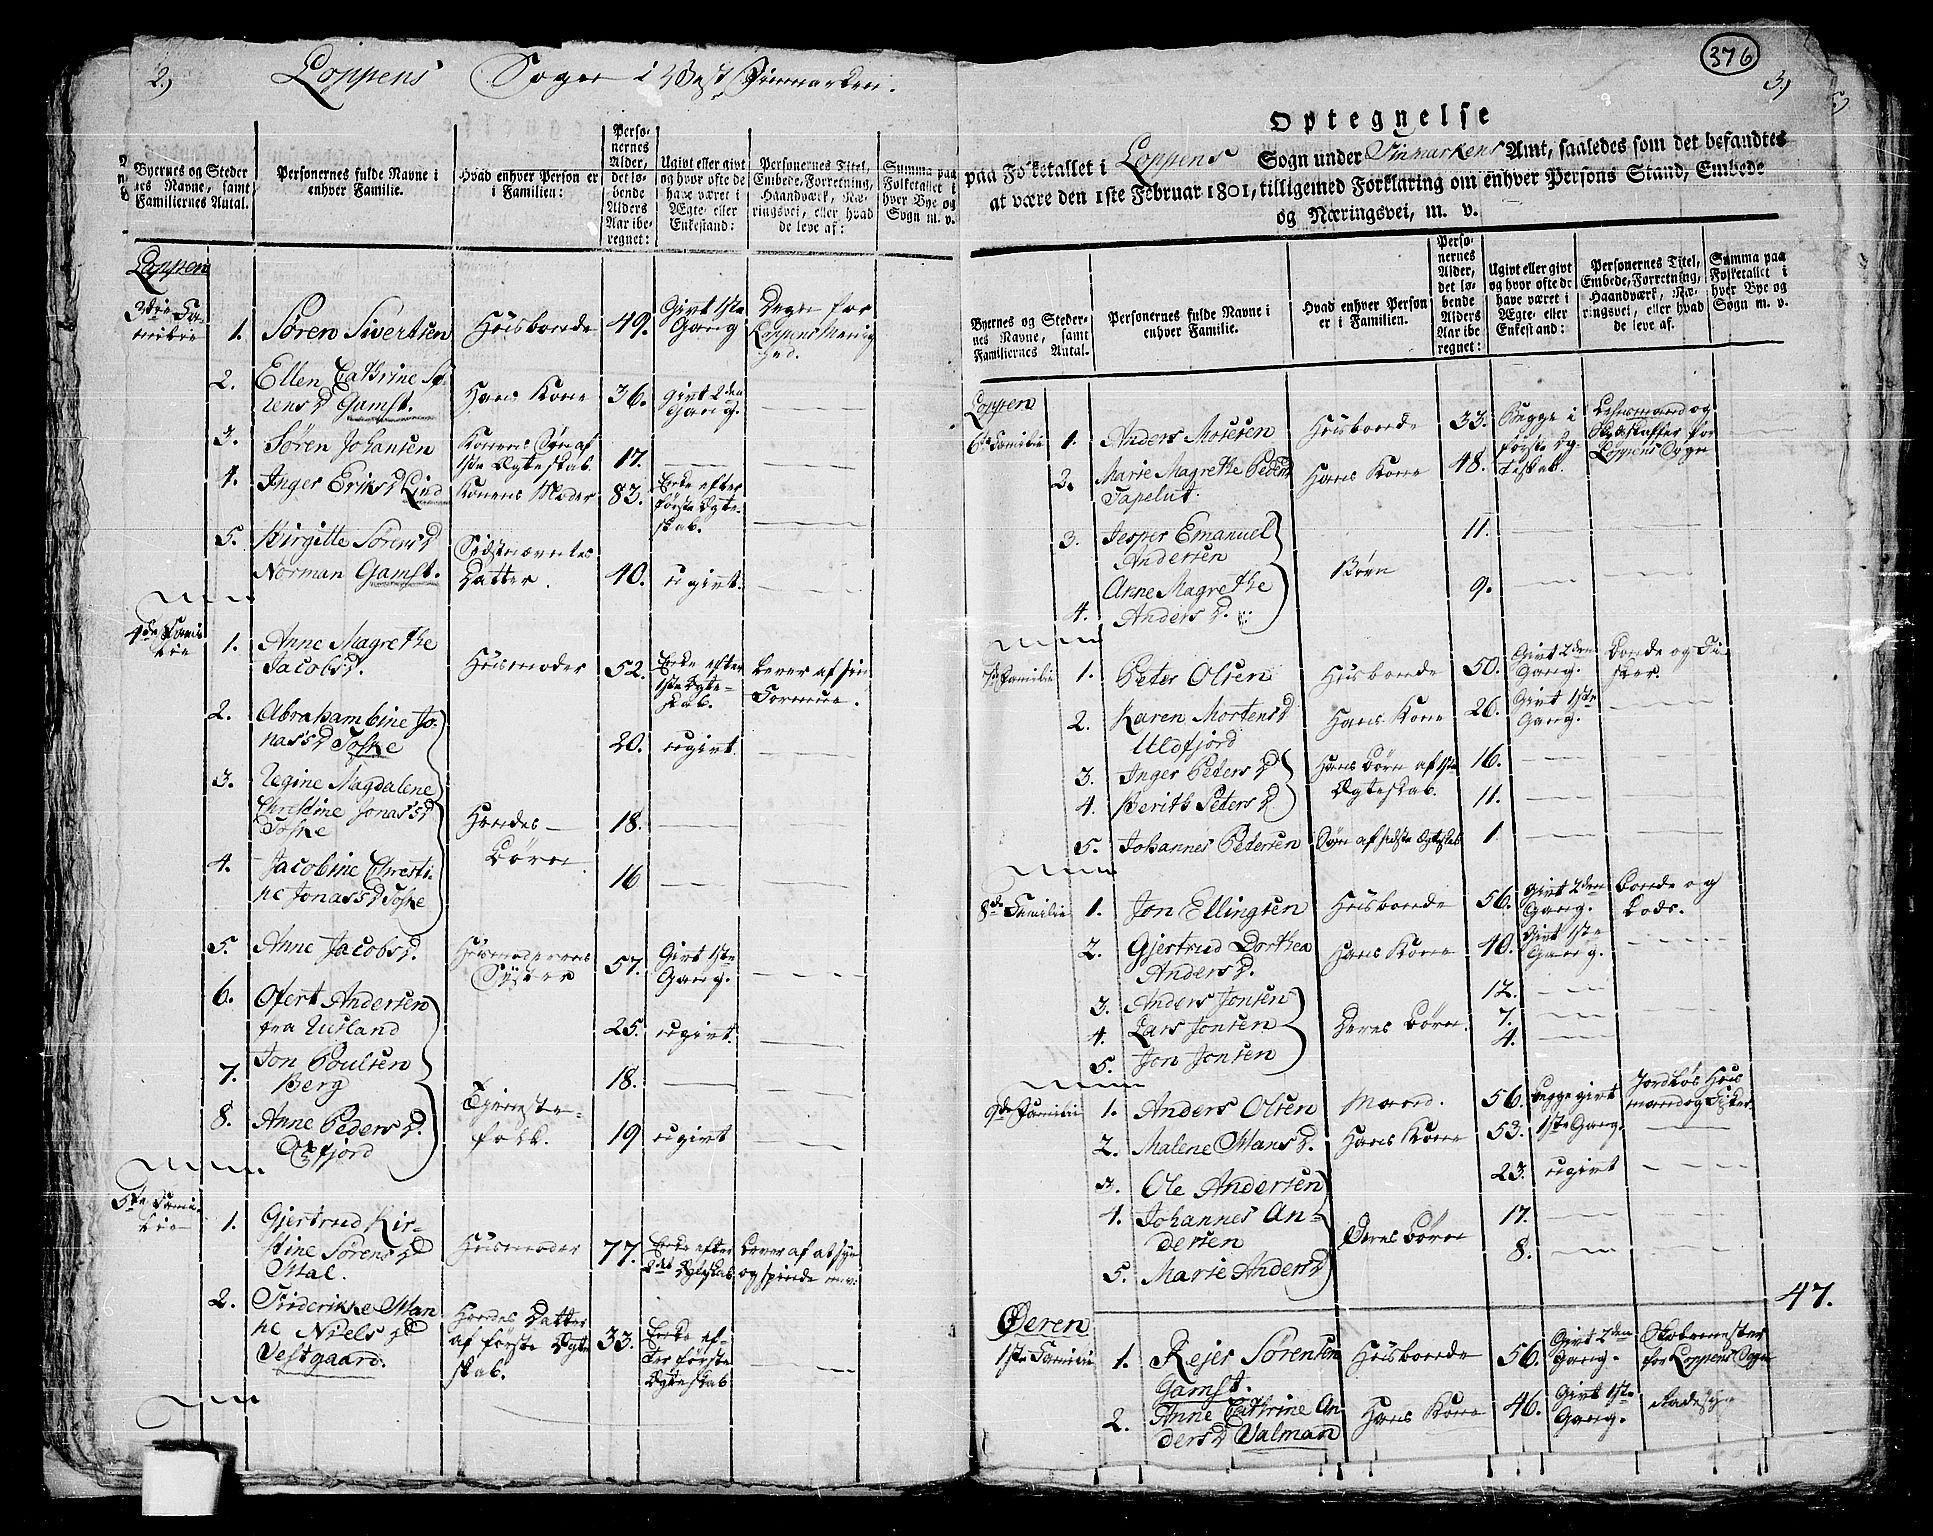 2.) Loppens Sogn i Vest Finmarken.
Byernes og Steder
nes Navne, samt
Familiernes Antal.
Personernes fulde Navne i
enhver Familie.
Hvad enhver Person er
i Familien:
Perso-
nernes
Alder,
det lø-
bende
Alders
Aar ibe-
regnet:
Ugivt eller givt
og hvor ofte de
have været i
Ægte- eller
Enkestand:
Personernes Titel,
Embede, Forretning,
Haandværk, Næ-
ringsvei, eller hvad
de leve af:
Summa paa
Folketallet i
hver Bye og
Sogn m. v.
Loppen
3die Fa-
milie 1. Søren Sivertsen Huusbonde 49. Givt 1ste Gang Degn for Loppens Menighed.
2. Ellen Cathrine Sø-
rensD Gamst. Hans Kone 36. Givt 2den Gang.
3. Søren Johansen Konens Søn af 1ste Ægteskab. 17.
4. Inger EriksD Lind Konens Moder 83. Enke efter første Ægteskab.
5. Birgitte SørensD
Norman Gamst. Sidstnævntes Datter. 40. ugivt.
4de Fami-
lie 1. Anne Magrethe
JacobsD. Huusmoder 52. Enke efter 1ste Ægteskab. Lever af sin Formue.
2. Abrahambine Jo-
nassD Toske 20. ugivt.
3. Regine Magdalene
Christine JonassD
Toske Hendes Børn 18.
4. Jacobine Christi-
ne JonassD Toske 16
5. Anne JacobsD. Huusmoderens Syster 57. Givt 1ste Gang.
6. Ofert Andersen
fra Rusland 25. ugivt.
7. Jon Poulsen
Berg Tjeneste- 18.
8. Anne PedersD.
Oxfjord folk. 19 ugivt
5te Fami-
lie 1. Gjertrud Kir-
stine SørensD
Mal. Huusmoder 77. Enke efter 2det Ægteskab Lever af at sye og spinde m.v.
2. Friderikke Man-
ne NielsD
Vestgaard. Hendes Datter af første Ægteskab. 33. Enke efter første Ægteskab
376
3.)
Optegnelse
paa Folketallet i Loppens Sogn under Finmarkens Amt, saaledes som det befandtes
at være den 1ste Februar 1801, tilligemed Forklaring om enhver Persons Stand, Embede
og Næringsvei, m. v.
Byernes og Steder-
nes Navne, samt
Familiernes Antal.
Personernes fulde Navne i
enhver Familie.
Hvad enhver Person
er i Familien.
Perso-
nernes
Alder,
det lø-
bende
Alders
Aar ibe-
regnet:
Ugivt eller givt
og hvor ofte de
have været i
Ægte- eller
Enkestand:
Personernes Titel,
Embede, Forretning,
Haandværk, Næ-
ringsvei, eller hvad
de leve af.
Summa paa
Folketallet i
hver Bye og
Sogn m. v.
Loppen
6te Familie 1. Anders Mosesen Huusbonde 33. Begge i første Ægteskab. Lehnsmand og Skydskaffer for Loppens Sogn
2. Marie Magrethe PedersD
Tapelut. Hans Kone 48.
3. Jesper Emanuel
Andersen Børn 11.
4. Anne Magrethe
AndersD. 9.
7de Familie 1. Peter Olsen Huusbonde 50. Givt 2den Gang. Bonde og Fisker.
2. Karen MortensD
Uldfjord Hans Kone 26. Givt 1ste Gang.
3. Inger PetersD Hans Børn af 1ste 16.
4. Berith PetersD Ægteskab. 11.
5. Johannes Petersen Søn af sidste Ægteskab 1.
8de Familie 1. Jon Ellingsen Huusbonde 56. Givt 2den Gang. Bonde og Lods.
2. Gjertrud Dorthea
AndersD. Hans Kone 40. Givt 1ste Gang.
3. Anders Jonsen 12.
4. Lars Jonsen Deres Børn. 7.
5. Jon Jonsen 4.
9de Familie 1. Anders Olsen Mand. 56. Begge givt 1ste Gang. Jordløs Huusmand og Fisker.
2. Malene MansD. Hans Kone 53.
3. Ole Andersen 23. ugivt
4. Johannes An-
dersen Deres Børn 17.
5. Marie AndersD 8.
47.
Øeren
1ste Familie 1. Rejer Sørensen
Gamst. Huusbonde 56. Givt 2den Gang. Skolemester for Loppens Sogn
2. Anne Cathrine An-
dersD Valman Hans Kone 46. Givt 1ste Gang.